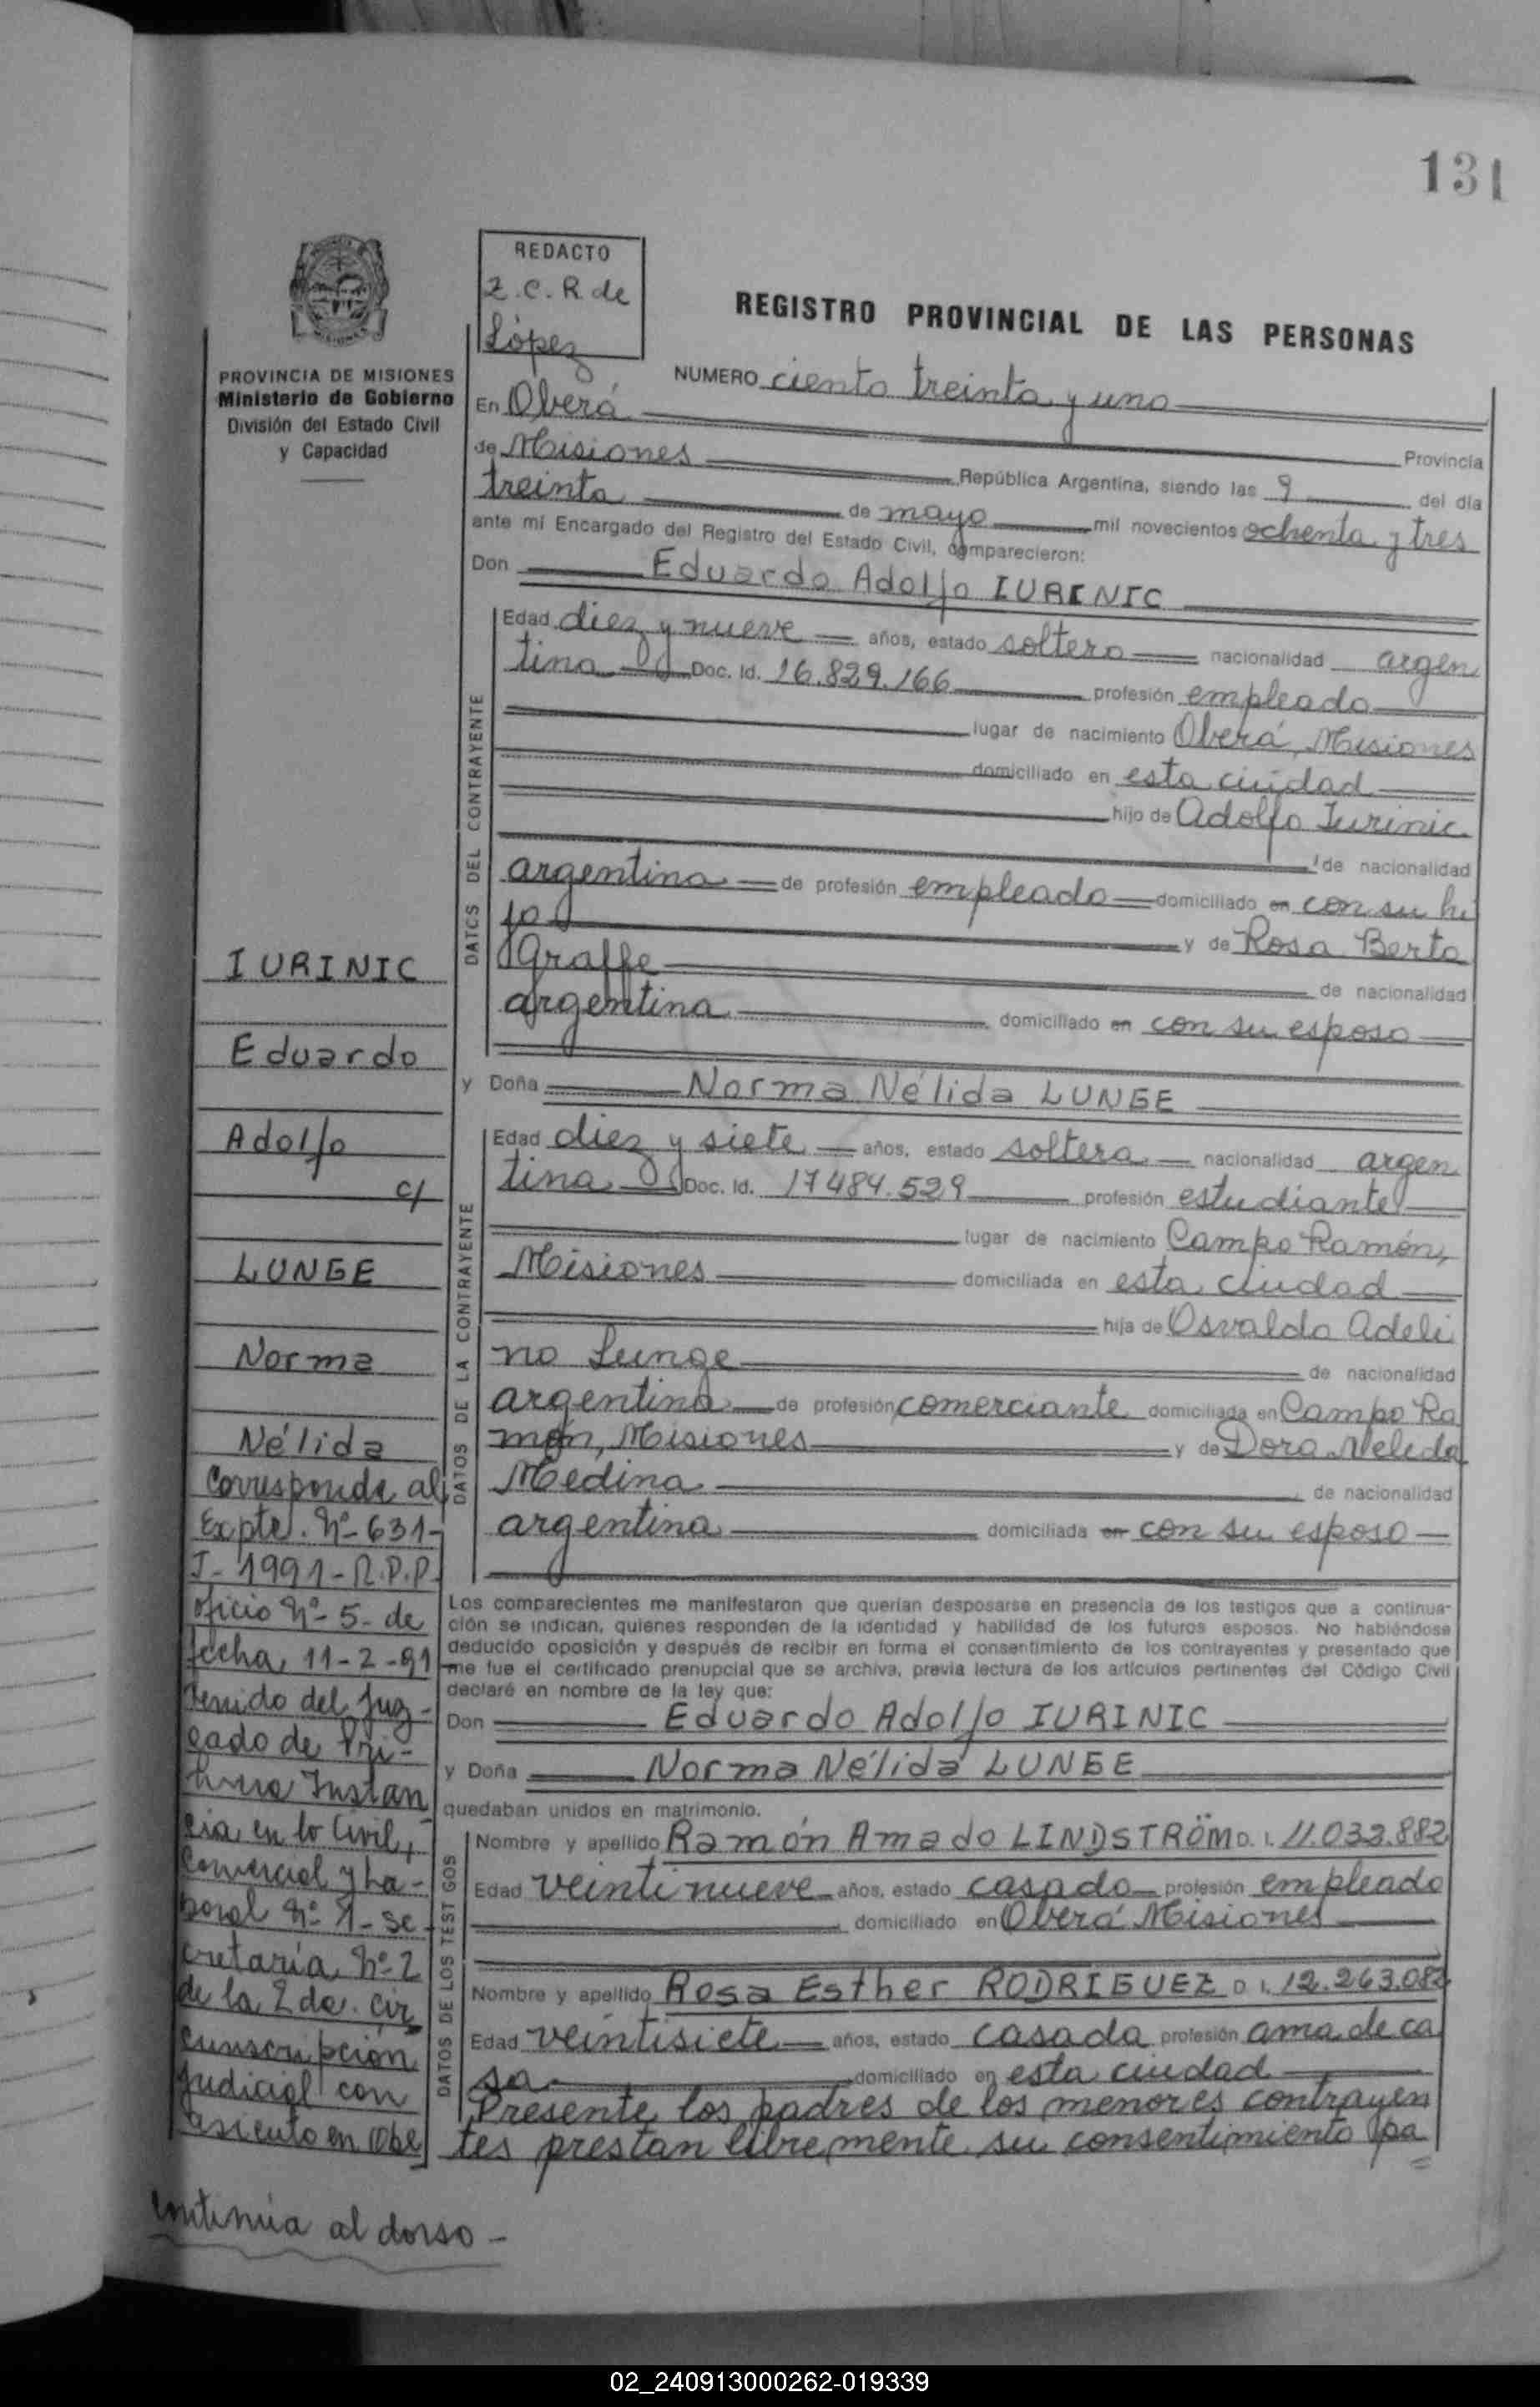 131
REDACTO
Z.C.R. de
López
REGISTRO PROVINCIAL DE LAS PERSONAS
PROVINCIA DE MISIONES
Ministerio de Gobierno
División del Estado Civil
y Capacidad
NUMERO ciento treinta y uno
En Oberá Provincia
de Misiones República Argentina, siendo las 9 del día
treinta de mayo mil novecientos ochenta y tres
ante mí Encargado del Registro del Estado Civil, comparecieron:
Don Eduardo Adolfo IURINIC
DATOS DEL CONTRAYENTE
Edad diez y nueve años, estado soltero nacionalidad argen
tina Doc. Id. 16.829.166 profesión empleado
lugar de nacimiento Oberá, Misiones
domiciliado en esta ciudad
hijo de Adolfo Iurinic
de nacionalidad
argentina de profesión empleado domiciliado en con su hi
jo y de Rosa Berta
Graffe de nacionalidad
argentina domiciliado en con su esposo
y Doña Norma Nélida LUNGE
DATOS DE LA CONTRAYENTE
Edad diez y siete años, estado soltera nacionalidad argen
tina Doc. Id. 17484.529 profesión estudiante
lugar de nacimiento Campo Ramón,
Misiones domiciliada en esta ciudad
hija de Osvaldo Adeli
no Lunge de nacionalidad
argentina de profesión comerciante domiciliada en Campo Ra
món, Misiones y de Dora Nelida
Medina de nacionalidad
argentina domiciliada en con su esposo
Los comparecientes me manifestaron que querían desposarse en presencia de los testigos que a continua-
ción se indican, quienes responden de la identidad y habilidad de los futuros esposos. No habiéndose
deducido oposición y después de recibir en forma el consentimiento de los contrayentes y presentado que
me fue el certificado prenupcial que se archiva, previa lectura de los artículos pertinentes del Código Civil
declaré en nombre de la ley que:
Don Eduardo Adolfo IURINIC
y Doña Norma Nélida LUNGE
quedaban unidos en matrimonio.
DATOS DE LOS TESTIGOS
Nombre y apellido Ramón Amado LINDSTRÖM D. I. 11.033.882
Edad veintinueve años, estado casado profesión empleado
domiciliado en Oberá Misiones
Nombre y apellido Rosa Esther RODRIGUEZ D. I. 12.263.082
Edad veintisiete años, estado casada profesión ama de ca
sa domiciliado en esta ciudad
Presente los padres de los menores contrayen
tes prestan libremente su consentimiento pa
IURINIC
Eduardo
Adolfo
c/
LUNGE
Norma
Nélida
Corresponde al
Expte. Nº 631-
I-1991-R.P.P.
oficio Nº 5- de
fecha 11-2-91
venido del Juz-
gado de Pri-
mera Instan
cia en lo Civil,
Comercial y La-
boral Nº 1- Se
cretaría Nº 2
de la 2da. Cir
cunscripción
Judicial con
asiento en Obe
continúa al dorso -
02_240913000262-019339